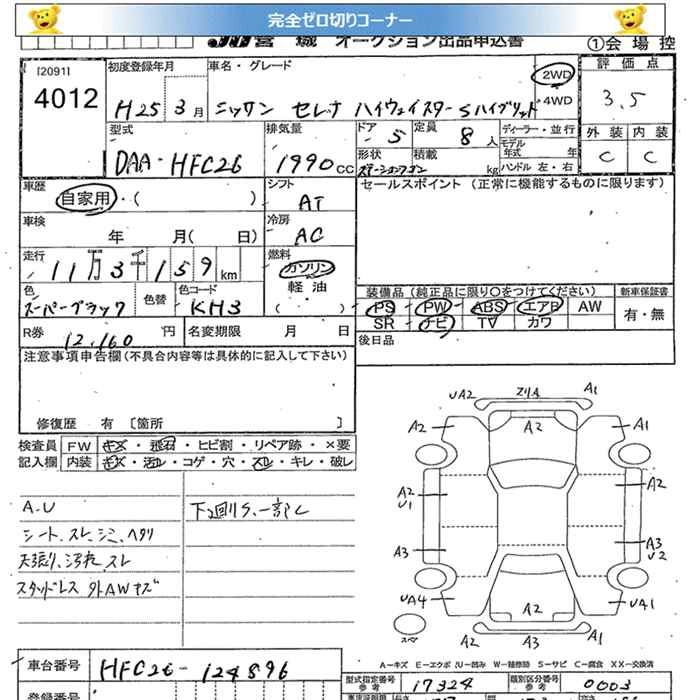 完全ゼロ切りコーナー
オークション出品申込書
①会場控
[2091]
4012
初度登録年月
H25 3月
車名・グレード
ニッサン セレナ ハイウェイスターSハイブリッド
2WD
4WD
評価点
3.5
外装 内装
C C
型式
DAA-HFC26
排気量
1990 CC
ドア 5
定員 8人
形状 ステーションワゴン
積載 kg
ディーラー・並行
モデル年式 年
ハンドル 左・右
車歴
自家用・( )
シフト
AT
セールスポイント (正常に機能するものに限ります)
車検
年 月( 日)
冷房
AC
走行
11万3千159km
燃料
ガソリン
軽油
( )
色
スーパーブラック
色替
色コード
KH3
装備品 (純正品に限り○をつけてください)
新車保証書
PS PW ABS エアB AW
SR ナビ TV カワ
有・無
R券 12,160円
名変期限 月 日
後日品
注意事項申告欄 (不具合内容等は具体的に記入して下さい)
修復歴 有 〔箇所 〕
検査員記入欄
FW キズ・飛石・ヒビ割・リペア跡・×要
内装 キズ・汚れ・コゲ・穴・スレ・キレ・破レ
A-U
下回りS、一部C
シート、スレ、シミ、ヘタリ
天張り、汚れ、スレ
スタッドレス 外AWキズ
UA2 A1
A2 A2 A1
A2 U1 A2
A3 A3 U2
UA4 A2 UA1
A2 A3 A1
スペア
A-キズ E-エクボ U-凹み W-補修跡 S-サビ C-腐食 XX-交換済
車台番号
HFC26-124896
型式指定番号 参考 17324
類別区分番号 参考 0003
登録番号